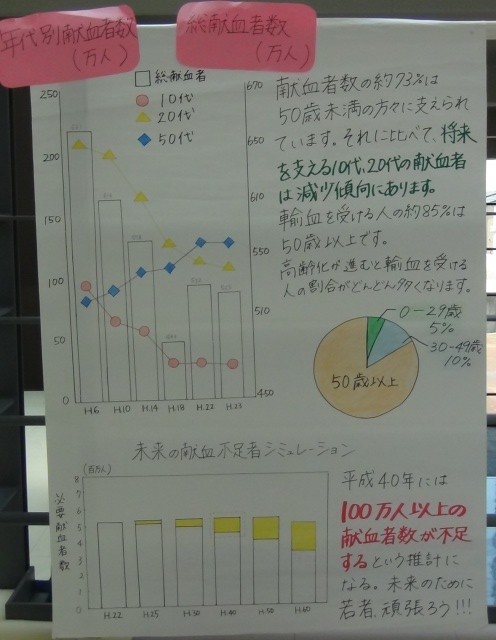 年代別献血者数
(万人)
総献血者数
(万人)
総献血者
10代
20代
50代
250
200
150
100
50
0
670
650
610
550
510
450
H.6
H.10
H.14
H.18
H.22
H.23
献血者数の約73%は
50歳未満の方々に支えられ
ています。それに比べて、将来
を支える10代、20代の献血者
は減少傾向にあります。
輸血を受ける人の約85%は
50歳以上です。
高齢化が進むと輸血を受ける
人の割合がどんどん多くなります。
0-29歳
5%
30-49歳
10%
50歳以上
未来の献血不足者シミュレーション
(百万人)
必要献血者数
8
7
6
5
4
3
2
1
0
H.22
H.25
H.30
H.40
H.50
H.60
平成40年には
100万人以上の
献血者数が不足
するという推計に
なる。未来のために
若者、頑張ろう!!!